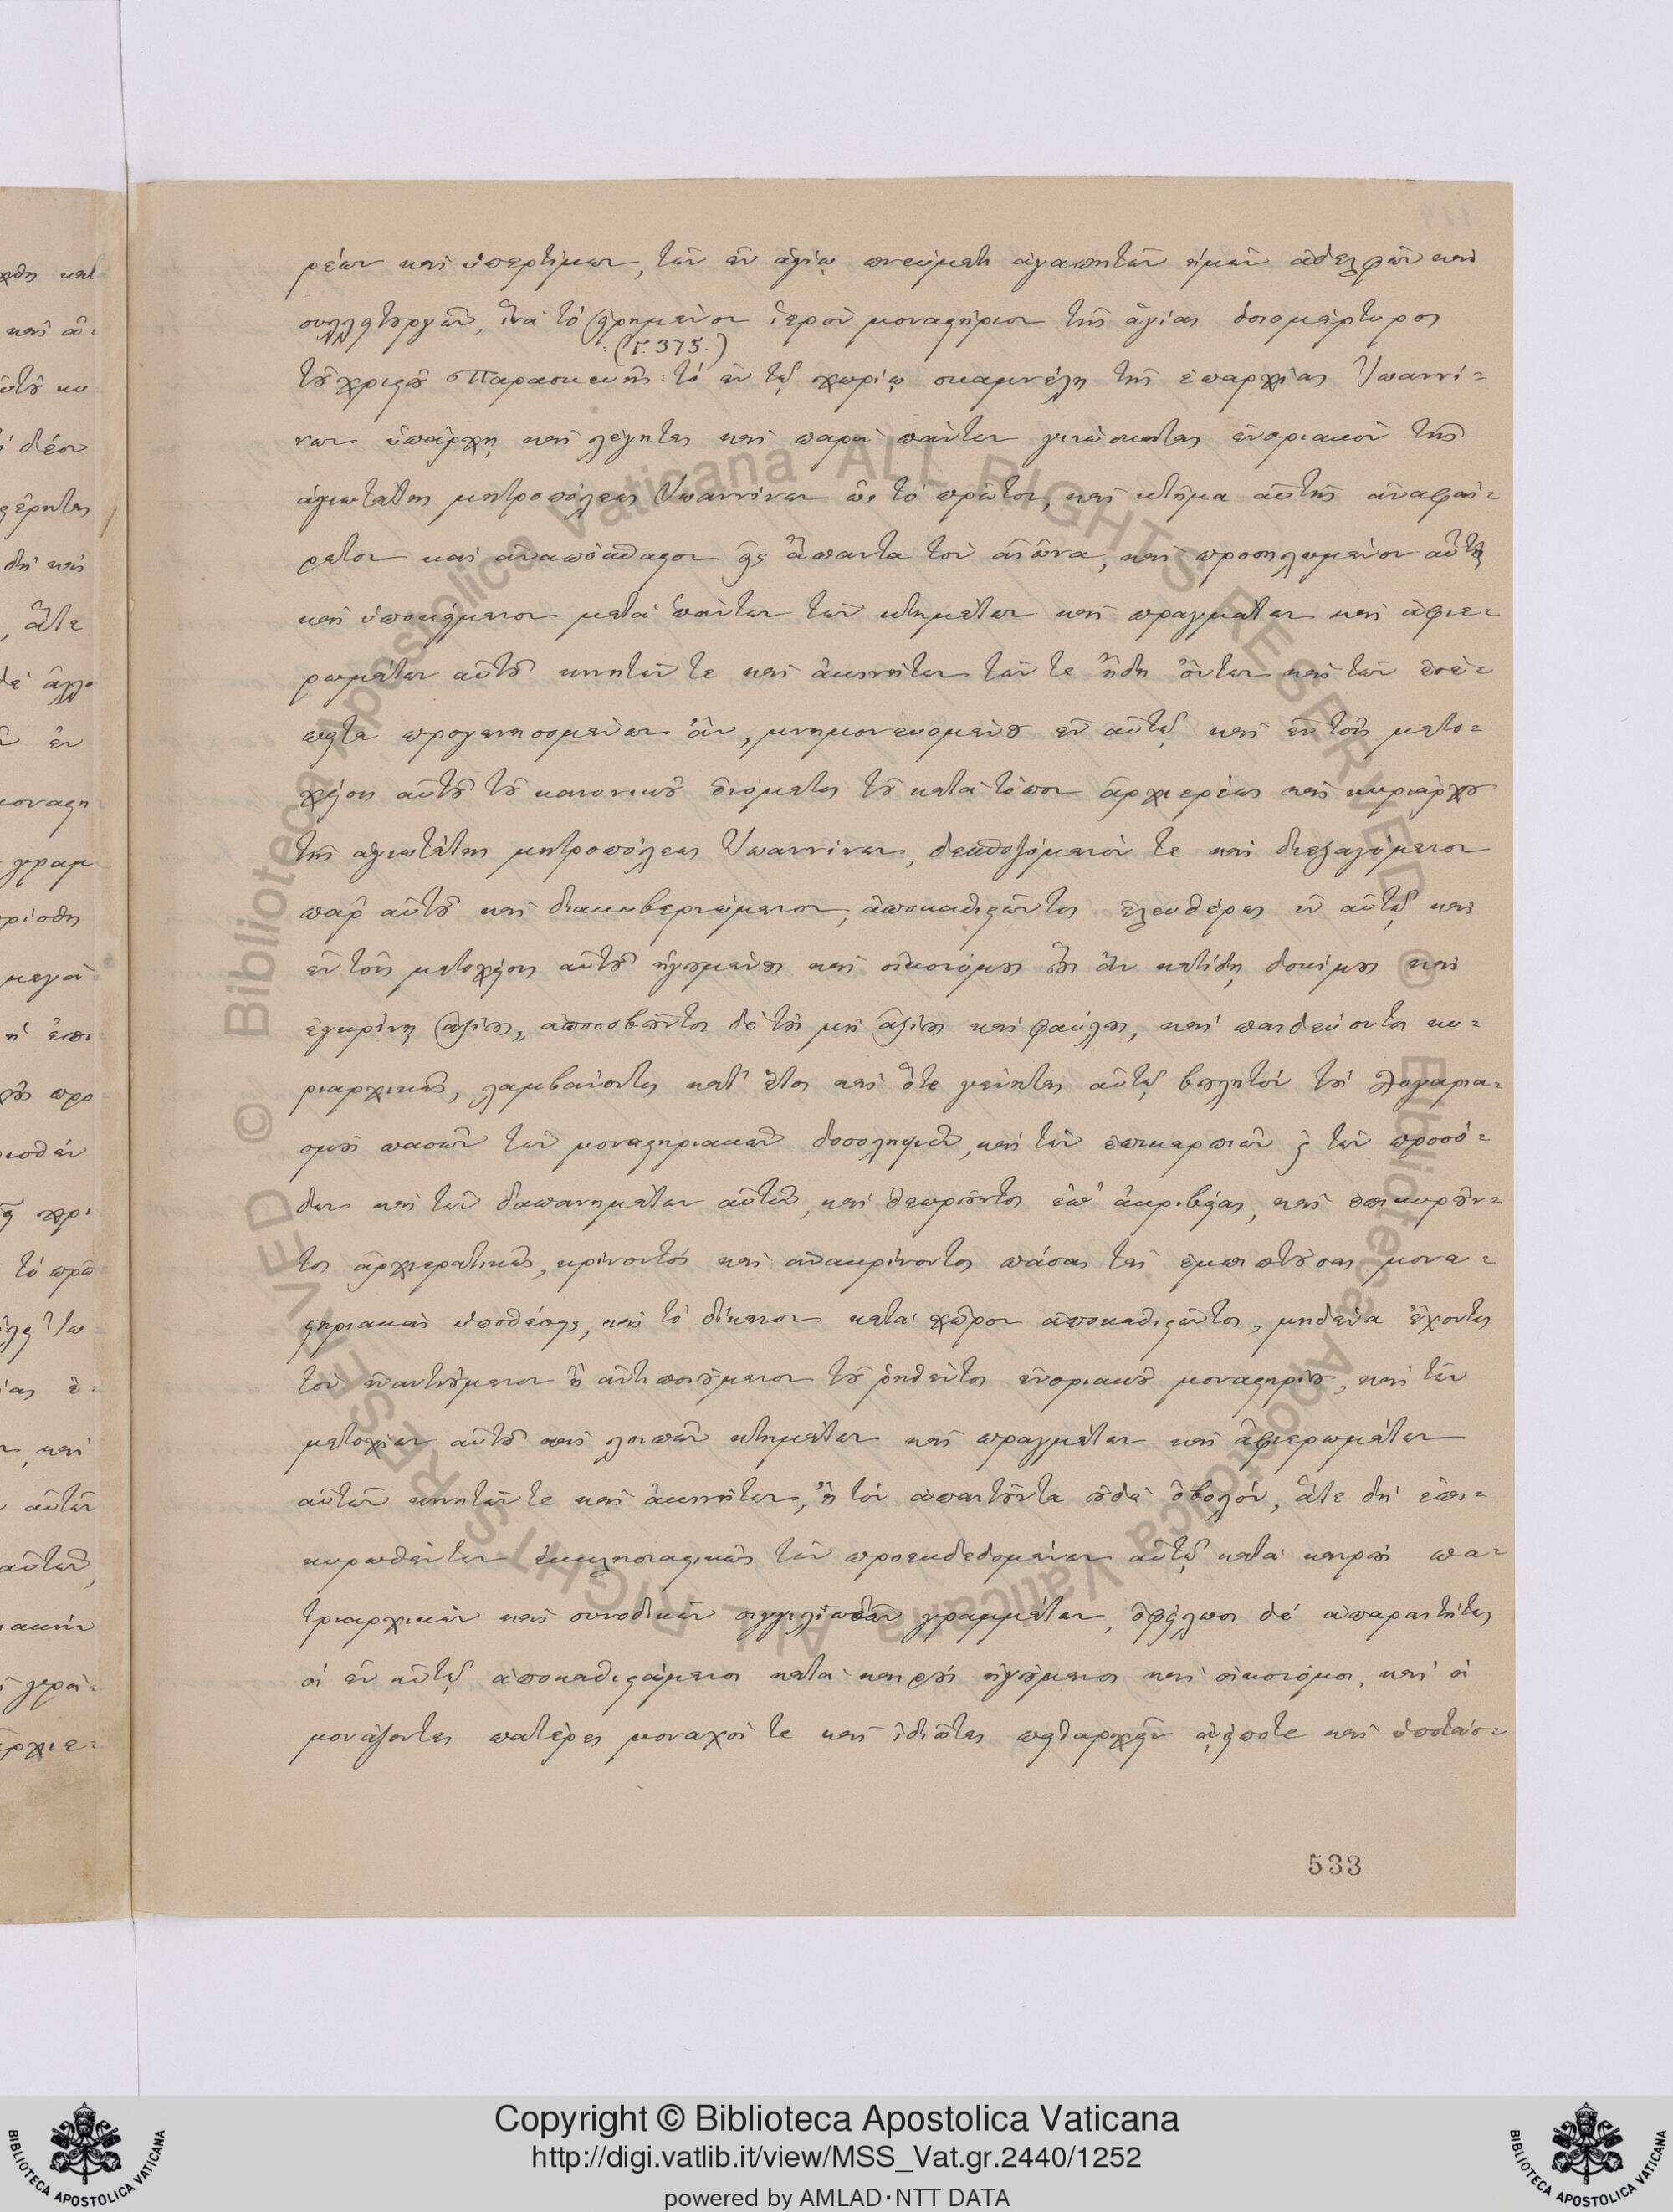 ρέων καὶ ὑπερτίμων, τῶν ἐν ἁγίῳ πνεύματι ἀγαπητῶν ἡμῶν ἀδελφῶν καὶ
συλλειτουργῶν, ἵνα τὸ εἰρημένον ἱερὸν μοναστήριον τῆς ἁγίας ὁσιομάρτυρος
:(Γ. 375.)
τοῦ χριστοῦ Παρασκευῆς: τὸ ἐν τῷ χωρίῳ σκαμνέλῃ τῆς ἐπαρχίας Ἰωαννί=
νων ὑπάρχῃ καὶ λέγηται καὶ παρὰ πάντων γινώσκηται ἐνοριακὸν τῆς
ἁγιωτάτης μητροπόλεως Ἰωαννίνων ὡς τὸ πρῶτον, καὶ κτῆμα αὐτῆς ἀναφαί=
ρετον καὶ ἀναπόσπαστον εἰς ἅπαντα τὸν αἰῶνα, καὶ προσηλωμένον αὐτῇ
καὶ ὑποκείμενον μετὰ πάντων τῶν κτημάτων καὶ πραγμάτων καὶ ἀφιε=
ρωμάτων αὐτοῦ κινητῶν τε καὶ ἀκινήτων τῶν τε ἤδη ὄντων καὶ τῶν ἐσέ=
πειτα προγενησομένων ἂν, μνημονευομένου ἐν αὐτῷ καὶ ἐν τοῖς μετο=
χείοις αὐτοῦ τοῦ κανονικοῦ ὀνόματος τοῦ κατὰ τόπον ἀρχιερέως καὶ κυριάρχου
τῆς ἁγιωτάτης μητροπόλεως Ἰωαννίνων, δεσποζόμενόν τε καὶ διεξαγόμενον
παρ' αὐτοῦ καὶ διακυβερνώμενον, ἀποκαθιστῶντος ἐλευθέρως ἐν αὐτῷ καὶ
ἐν τοῖς μετοχείοις αὐτοῦ ἡγουμένους καὶ οἰκονόμους οὓς ἂν κατίδῃ δοκίμους καὶ
ἐγκρίνῃ ἀξίους, ἀποσοβοῦντος δὲ τοὺς μὴ ἀξίους καὶ φαύλους, καὶ παιδεύοντος κυ=
ριαρχικῶς, λαμβάνοντος κατ' ἔτος καὶ ὅτε γένηται αὐτῷ βουλητὸν τοὺς λογαρια=
σμοὺς πασῶν τῶν μοναστηριακῶν δοσοληψιῶν, καὶ τῶν ἐπικαρπιῶν ϗ τῶν προσό=
δων καὶ τῶν δαπανημάτων αὐτῶν, καὶ θεωροῦντος ἐπ' ἀκριβείας, καὶ ἐπικυροῦν=
τος ἀρχιερατικῶς, κρίνοντός καὶ ἀνακρίνοντος πάσας τὰς ἐμπιπτούσας μονα=
στηριακὰς ὑποθέσεις, καὶ τὸ δίκαιον κατὰ χῶρον ἀποκαθιστῶντος, μηδένα ἔχοντος
τὸν ἐναντιούμενον ἢ ἀντιποιούμενον τοῦ ῥηθέντος ἐνοριακοῦ μοναστηρίου, καὶ τῶν
μετοχίων αὐτοῦ καὶ λοιπῶν κτημάτων καὶ πραγμάτων καὶ ἀφιερωμάτων
αὐτῶν κινητῶν τε καὶ ἀκινήτων, ἢ τὸν ἀπαιτοῦντα οὐδὲ ὀβολόν, ἅτε δὴ ἐπι=
κυρωθέντων ἐκκλησιαστικῶς τῶν προεκδεδομένων αὐτῷ κατὰ καιροὺς πα=
τριαρχικῶν καὶ συνοδικῶν σιγγιλιωδῶν γραμμάτων, ὀφείλωσι δὲ ἀπαραιτήτως
οἱ ἐν αὐτῷ ἀποκαθιστάμενοι κατὰ καιροὺς ἡγούμενοι καὶ οἰκονόμοι, καὶ οἱ
μονάζοντες πατέρες μοναχοί τε καὶ ἰδιῶται πειθαρχεῖν ἀείποτε καὶ ὑποτάσ=
533
Copyright © Biblioteca Apostolica Vaticana
http://digi.vatlib.it/view/MSS_Vat.gr.2440/1252
powered by AMLAD·NTT DATA